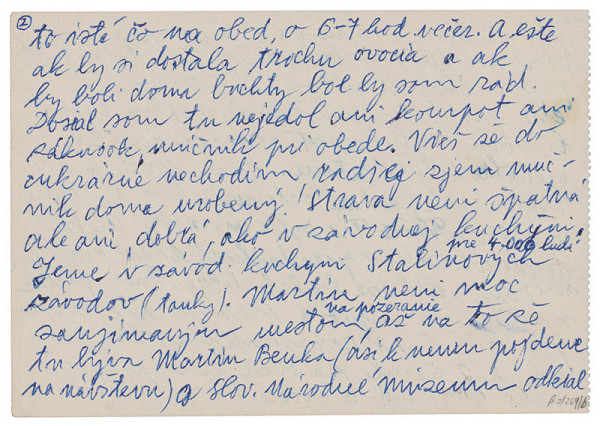 ②
to isté čo na obed, o 6-7 hod večer. A ešte
ak by si dostala trochu ovocia a ak
by boli doma buchty bol by som rád.
Dosiaľ som tu nejedol ani kompot ani
zákusok, múčnik pri obede. Vieš že do
cukrárne nechodím radšej zjem múč-
nik doma urobený. Strava neni špatná
ale ani dobrá, ako v závodnej kuchyni
pre 4.000 ludí.
Jeme v závod. kuchyni Stalinových
závodov (tanky). Martin neni moc
zaujímavým mestom, na pozeranie až na to že
tu býva Martin Benka (asi k nemu pojdeme
na návštevu) a Slov. Národné múzeum odkial